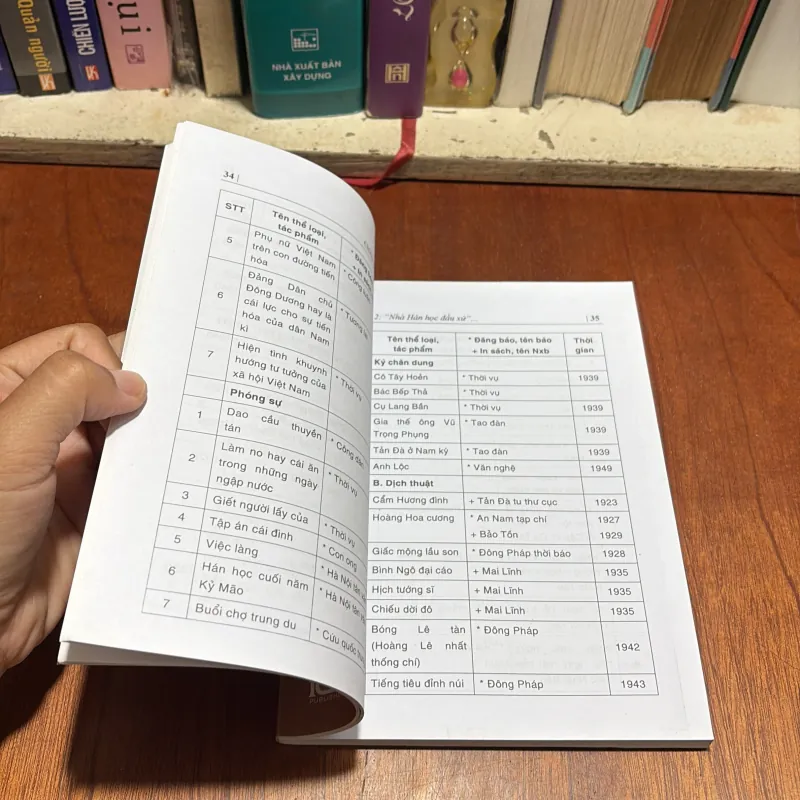 Quân người
CHIẾN LƯỢ
ụi
NHÀ XUẤT BẢN
XÂY DỰNG
34 |
STT
Tên thể loại,
tác phẩm
5
Phụ nữ Việt Nam
trên con đường tiến
hóa
6
Đảng Dân chủ
Đông Dương hay là
cái lực cho sự tiến
hóa của dân Nam
kì
* Tương
7
Hiện tình khuynh
hướng tư tưởng của
xã hội Việt Nam
* Thời vụ
Phóng sự
1
Dao cầu thuyền
tán
* Công dân
2
Làm no hay cái ăn
trong những ngày
ngập nước
* Thời vụ
3
Giết người lấy của
* Thời vụ
4
Tập án cái đình
* Con ong
5
Việc làng
* Hà Nội tân
6
Hán học cuối năm
Kỷ Mão
* Hà Nội tân
7
Buổi chợ trung du
* Cứu quốc
2: "Nhà Hán học đầu xứ"...
| 35
Tên thể loại,
tác phẩm
* Đăng báo, tên báo
+ In sách, tên Nxb
Thời
gian
Ký chân dung
Cô Tây Hoẻn
* Thời vụ
1939
Bác Bếp Thả
* Thời vụ
Cụ Lang Bần
* Thời vụ
1939
Gia thế ông Vũ
Trọng Phụng
* Tao đàn
1939
Tản Đà ở Nam kỳ
* Tao đàn
1939
Anh Lộc
* Văn nghệ
1949
B. Dịch thuật
Cẩm Hương đình
+ Tản Đà tu thư cục
1923
Hoàng Hoa cương
* An Nam tạp chí
1927
+ Bảo Tồn
1929
Giấc mộng lầu son
* Đông Pháp thời báo
1928
Bình Ngô đại cáo
+ Mai Lĩnh
1935
Hịch tướng sĩ
+ Mai Lĩnh
1935
Chiếu dời đô
+ Mai Lĩnh
1935
Bóng Lê tàn
(Hoàng Lê nhất
thống chí)
* Đông Pháp
1942
Tiếng tiêu đỉnh núi
* Đông Pháp
1943